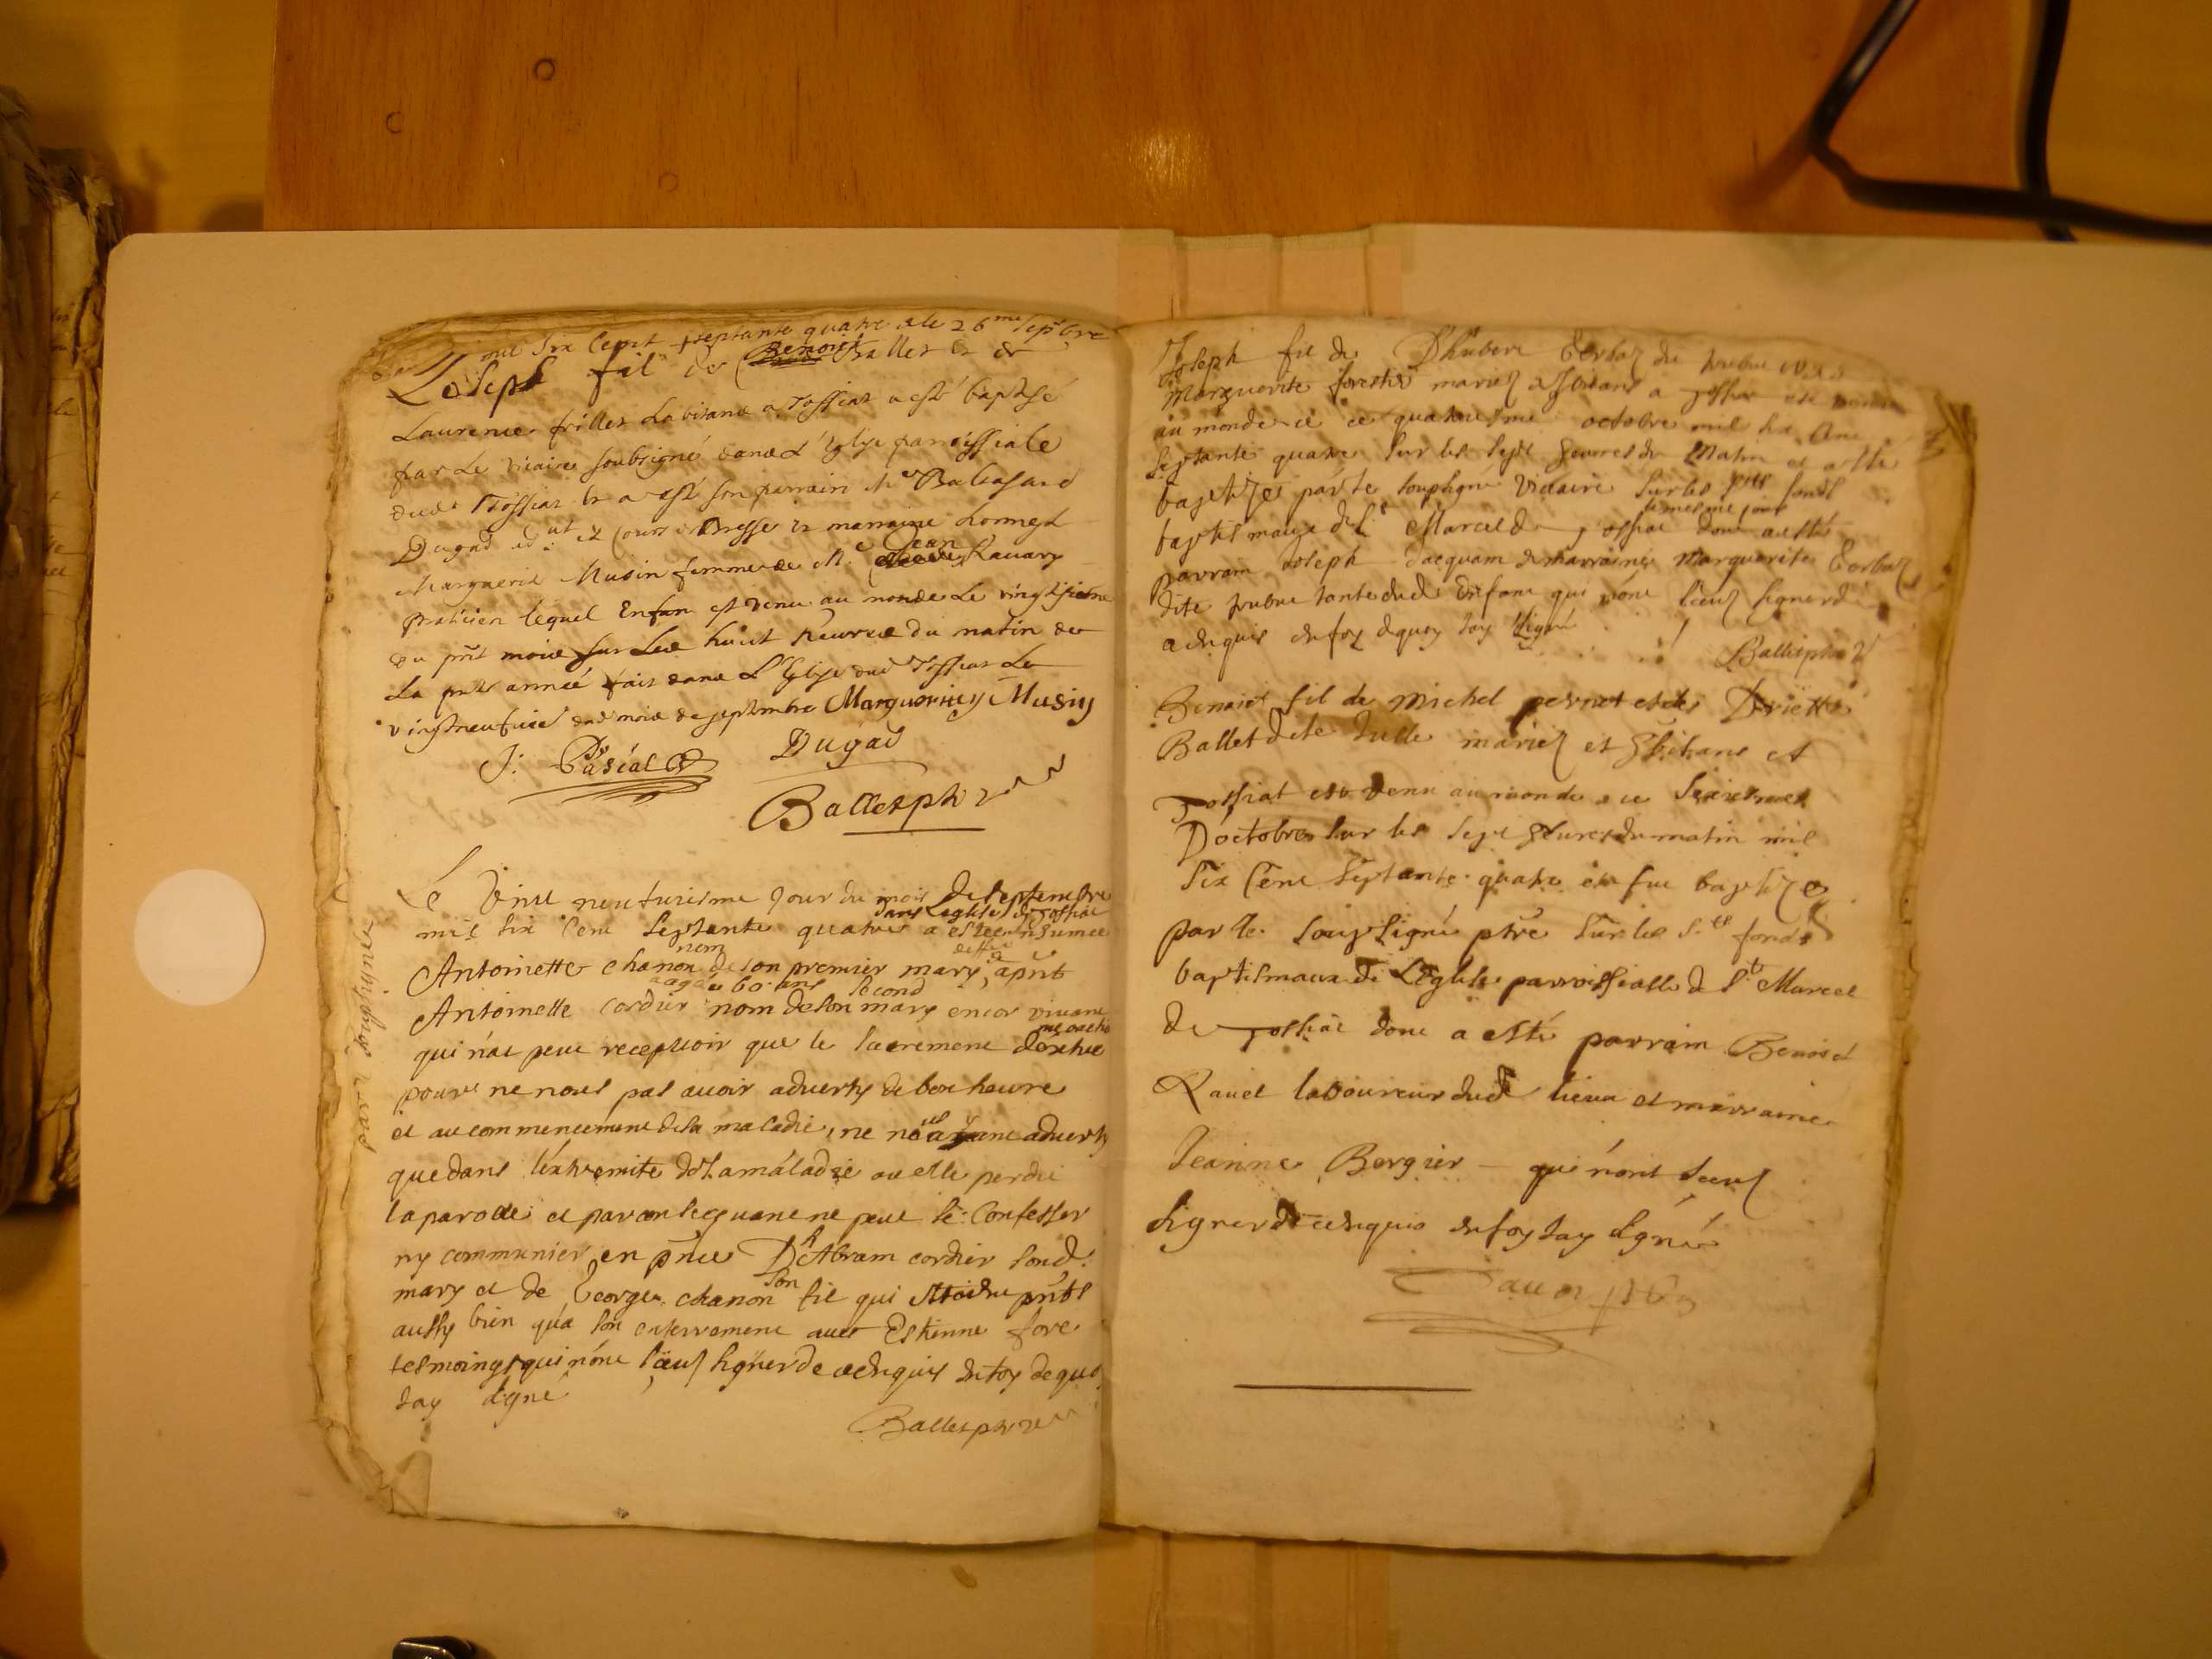 mil six cent septante quatre & le 26me sepbre
Joseph fil de Benoict Ballet et de
Laurence frilles habitans a Tossiat a esté baptisé
par le vicaire soubsigné dans l'Eglise parroissiale
dud Tossiat et a esté son parrain Me Baltasard
Dugad et marraine honneste
Marguerite Musin femme de Me Jean Rauary
praticien lequel Enfan est venu au monde le vingtsixième
du pnt mois sur les huict heures du matin de
la pnte année fait dans L'Eglise dud Tossiat le
vingtneufuie dud mois de septembre Marguerite Musiy
J: Pascal Dugad
Ballet ptr
Le Vint neufuiesme Jour du mois de septembre
mil six cent septante quatre a esté enhumee
dans Leglise de Tossiat
Antoinette chanon nom de son premier mary, deffu & apnt
aagee 60 ans
Antoinette cordier nom de son second mary encor viuant
qui n'at peut recepuoir que le sacrement dextre
me onctio
pour ne nous pas auoir aduerty de bon heure
et au commencement de sa maladie, ne nous ayant aduerty
que dans l'extremite de sa maladie ou elle perdu
la parolle et par consequant ne peut se Confesser
ny communier en pnce D'Abram cordier sond
mary et de George chanon son fil qui estoient pnts
aussy bien qu'a son enterrement auec Estienne fore
tesmoings qui n'ont sceuz signer de ce enquis en foy de quo
Jay signé
Ballet ptr
Joseph fil de Dhubert Corbaz du
Marguerite forestier mariez et habitans a Tossia est venu
au monde ce quatriesme octobre mil six Cent
septante quatre sur les sept heures du Matin et a esté
baptizé par le soupsigné Vicaire sur les sts fonds
le mesme jour
baptismaux de St Marcel de Tossiat dont a esté
parrain Joseph Jacquam & marraine Marguerite Corbaz
dite tante dud Enfant qui n'ont sceuz signer de
ce enquis en foy dequoy Jay Signé
Ballet ptr
Benoict fil de Michel pernet et de
Ballet dite Tulle mariez et habitans a
Tossiat est venu au monde ce sixiesme
D'octobre sur les sept heures du matin mil
six Cent septante quatre et fut baptizé
par le soupsigné ptre sur les Sts fonds
baptismaux de L'Eglise parroissialle de St Marcel
de Tossiat dont a esté parrain Benoict
Rauet laboureur dud lieux et marraine
Jeanne Bergier qui n'ont sceuz
signer de ce enquis en foy Jay signé